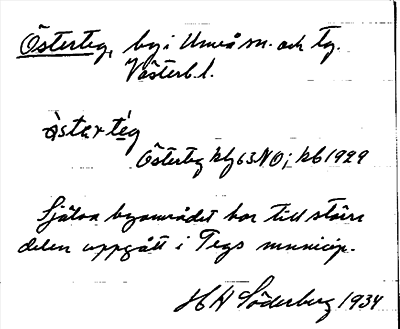 Österteg, by i Umeå sn. och tg.
Västerb. l.
àstərtég
Österteg kbl 63 NO; kb 1929
Själva byområdet har till större
delen uppgått i Tegs municip.
H H Söderberg 1934